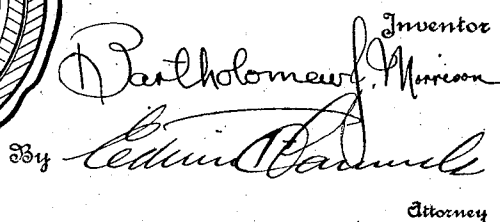 Inventor
Bartholomew J. Morrison
By Edwin
Attorney